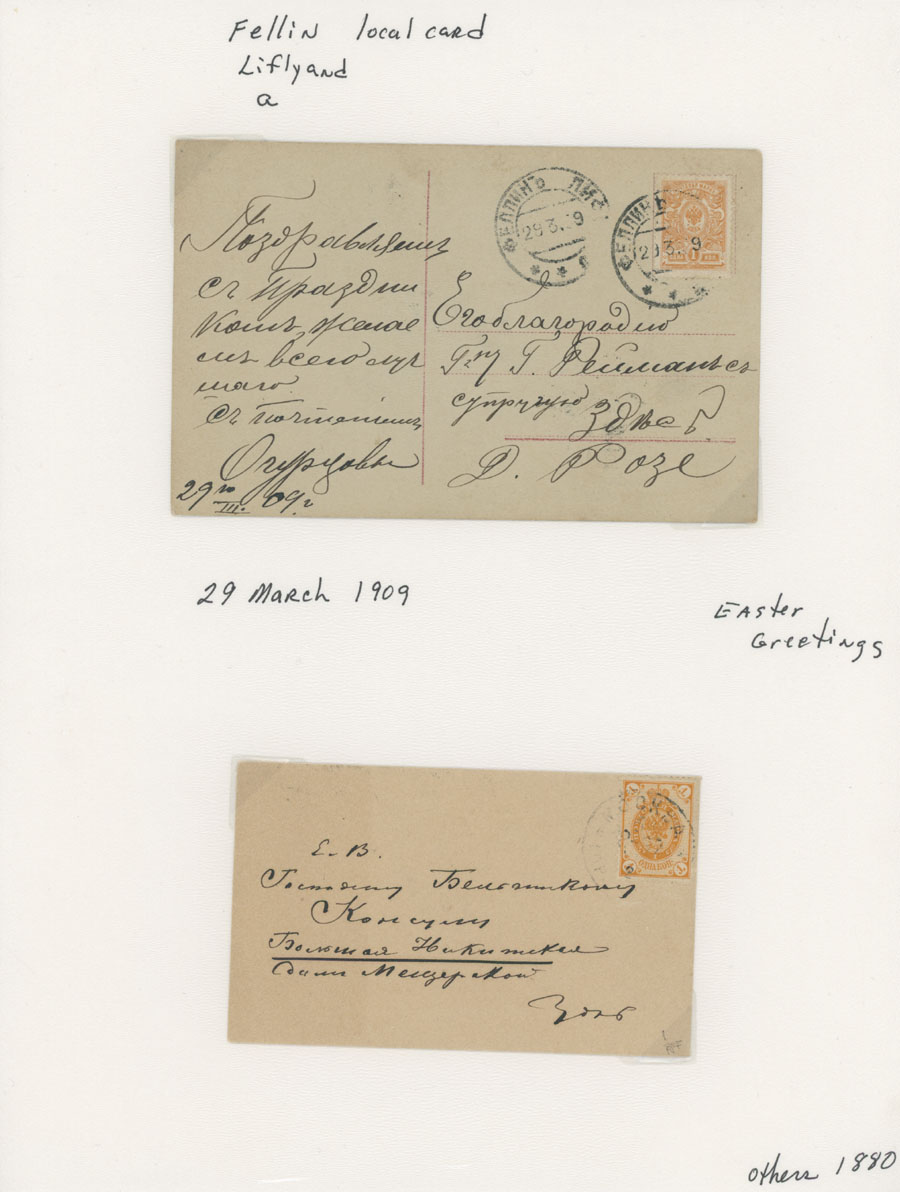 Fellin local card
Liflyand
a
ФЕЛЛИНЪ ЛИФ.
29 3. 09
ФЕЛЛИНЪ
29 3. 9
1 КОП.
Поздравляемъ
съ праздни
комъ, желае
мъ всего луч
шаго
съ почтениемъ
Огурцовы
29го III. 09 г.
Его благородию
Г-ну Г. Рейманъ съ
супругую
Здѣсь
Д. Розе
29 March 1909
Easter
Greetings
1 1
ОДНА КОП.
1 1
Е. В.
Господину Бельгийскому
Консулу
Большая Никитская
домъ Мещерской
Здѣсь
others 1880